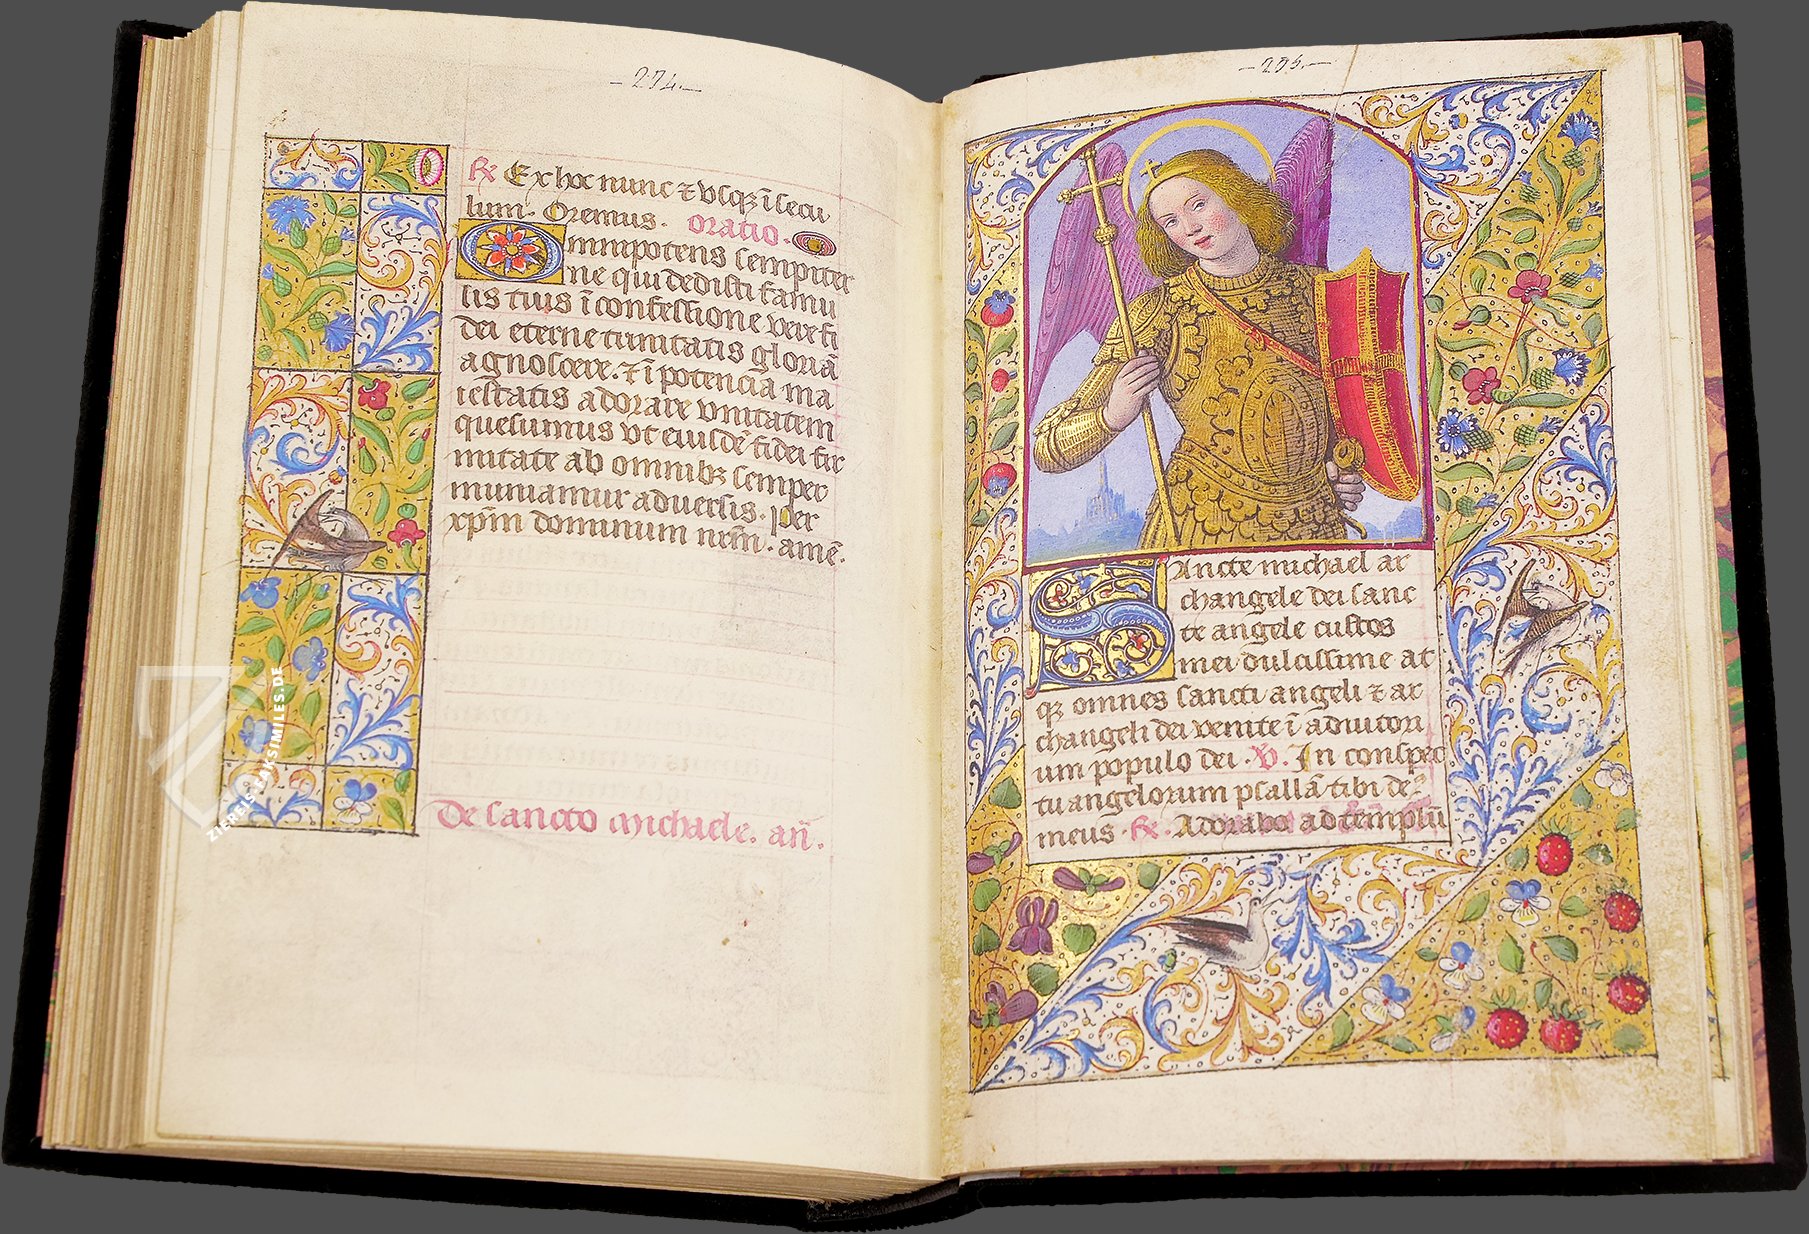 - 274. -
℟ Ex hoc nunc ⁊ vsqꝫ ĩ secu
lum. Oremus. Oratio.
Omnipotens sempiter
ne qui dedisti famu
lis tuis ĩ confessione vere fi
dei eterne trinitatis gloriã
agnoscere. ⁊ ĩ potencia ma
iestatis adorare vnitatem
quesumus vt eiusdẽ fidei fir
mitate ab omnibꝫ semper
muniamur aduersis. Per
xp̃m dominum nr̃m. amẽ.
De sancto Michaele. añ.
- 275. -
Sancte michael ar
changele dei sanc
te angele custos
mei dulcissime at
qꝫ omnes sancti angeli ⁊ ar
changeli dei venite ĩ adiutori
um populo dei. ℣. In conspec
tu angelorum psallã tibi deꝰ
meus. ℟. Adorabo ad templũ
ZIEREIS-FAKSIMILES.DE